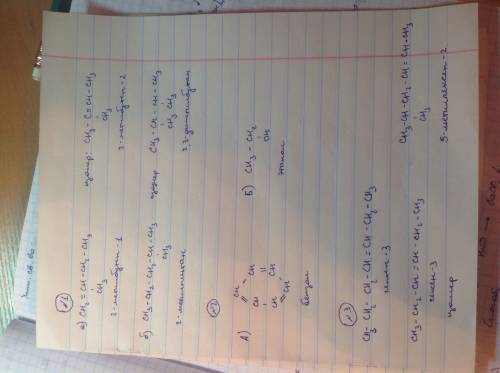 №1
а) CH₂ = CH - CH₂ - CH₃
CH₃
2-метилбутен-1
изомер: CH₃ - C = CH - CH₃
CH₃
2-метилбутен-2
б) CH₃ - CH₂ - CH₂ - CH - CH₃
CH₃
2-метилпентан
изомер CH₃ - CH - CH - CH₃
CH₃ CH₃
2,3-диметилбутан
№2
А)
CH
CH CH
CH CH
CH
бензол
Б) CH₃ - CH₂
OH
этанол
№3
CH₃ - CH₂ - CH₂ - CH = CH - CH₂ - CH₃
гептен-3
CH₃ - CH₂ - CH = CH - CH₂ - CH₃
гексен-3
изомер
CH₃ - CH - CH₂ - CH = CH - CH₃
CH₃
5-метилгексен-2